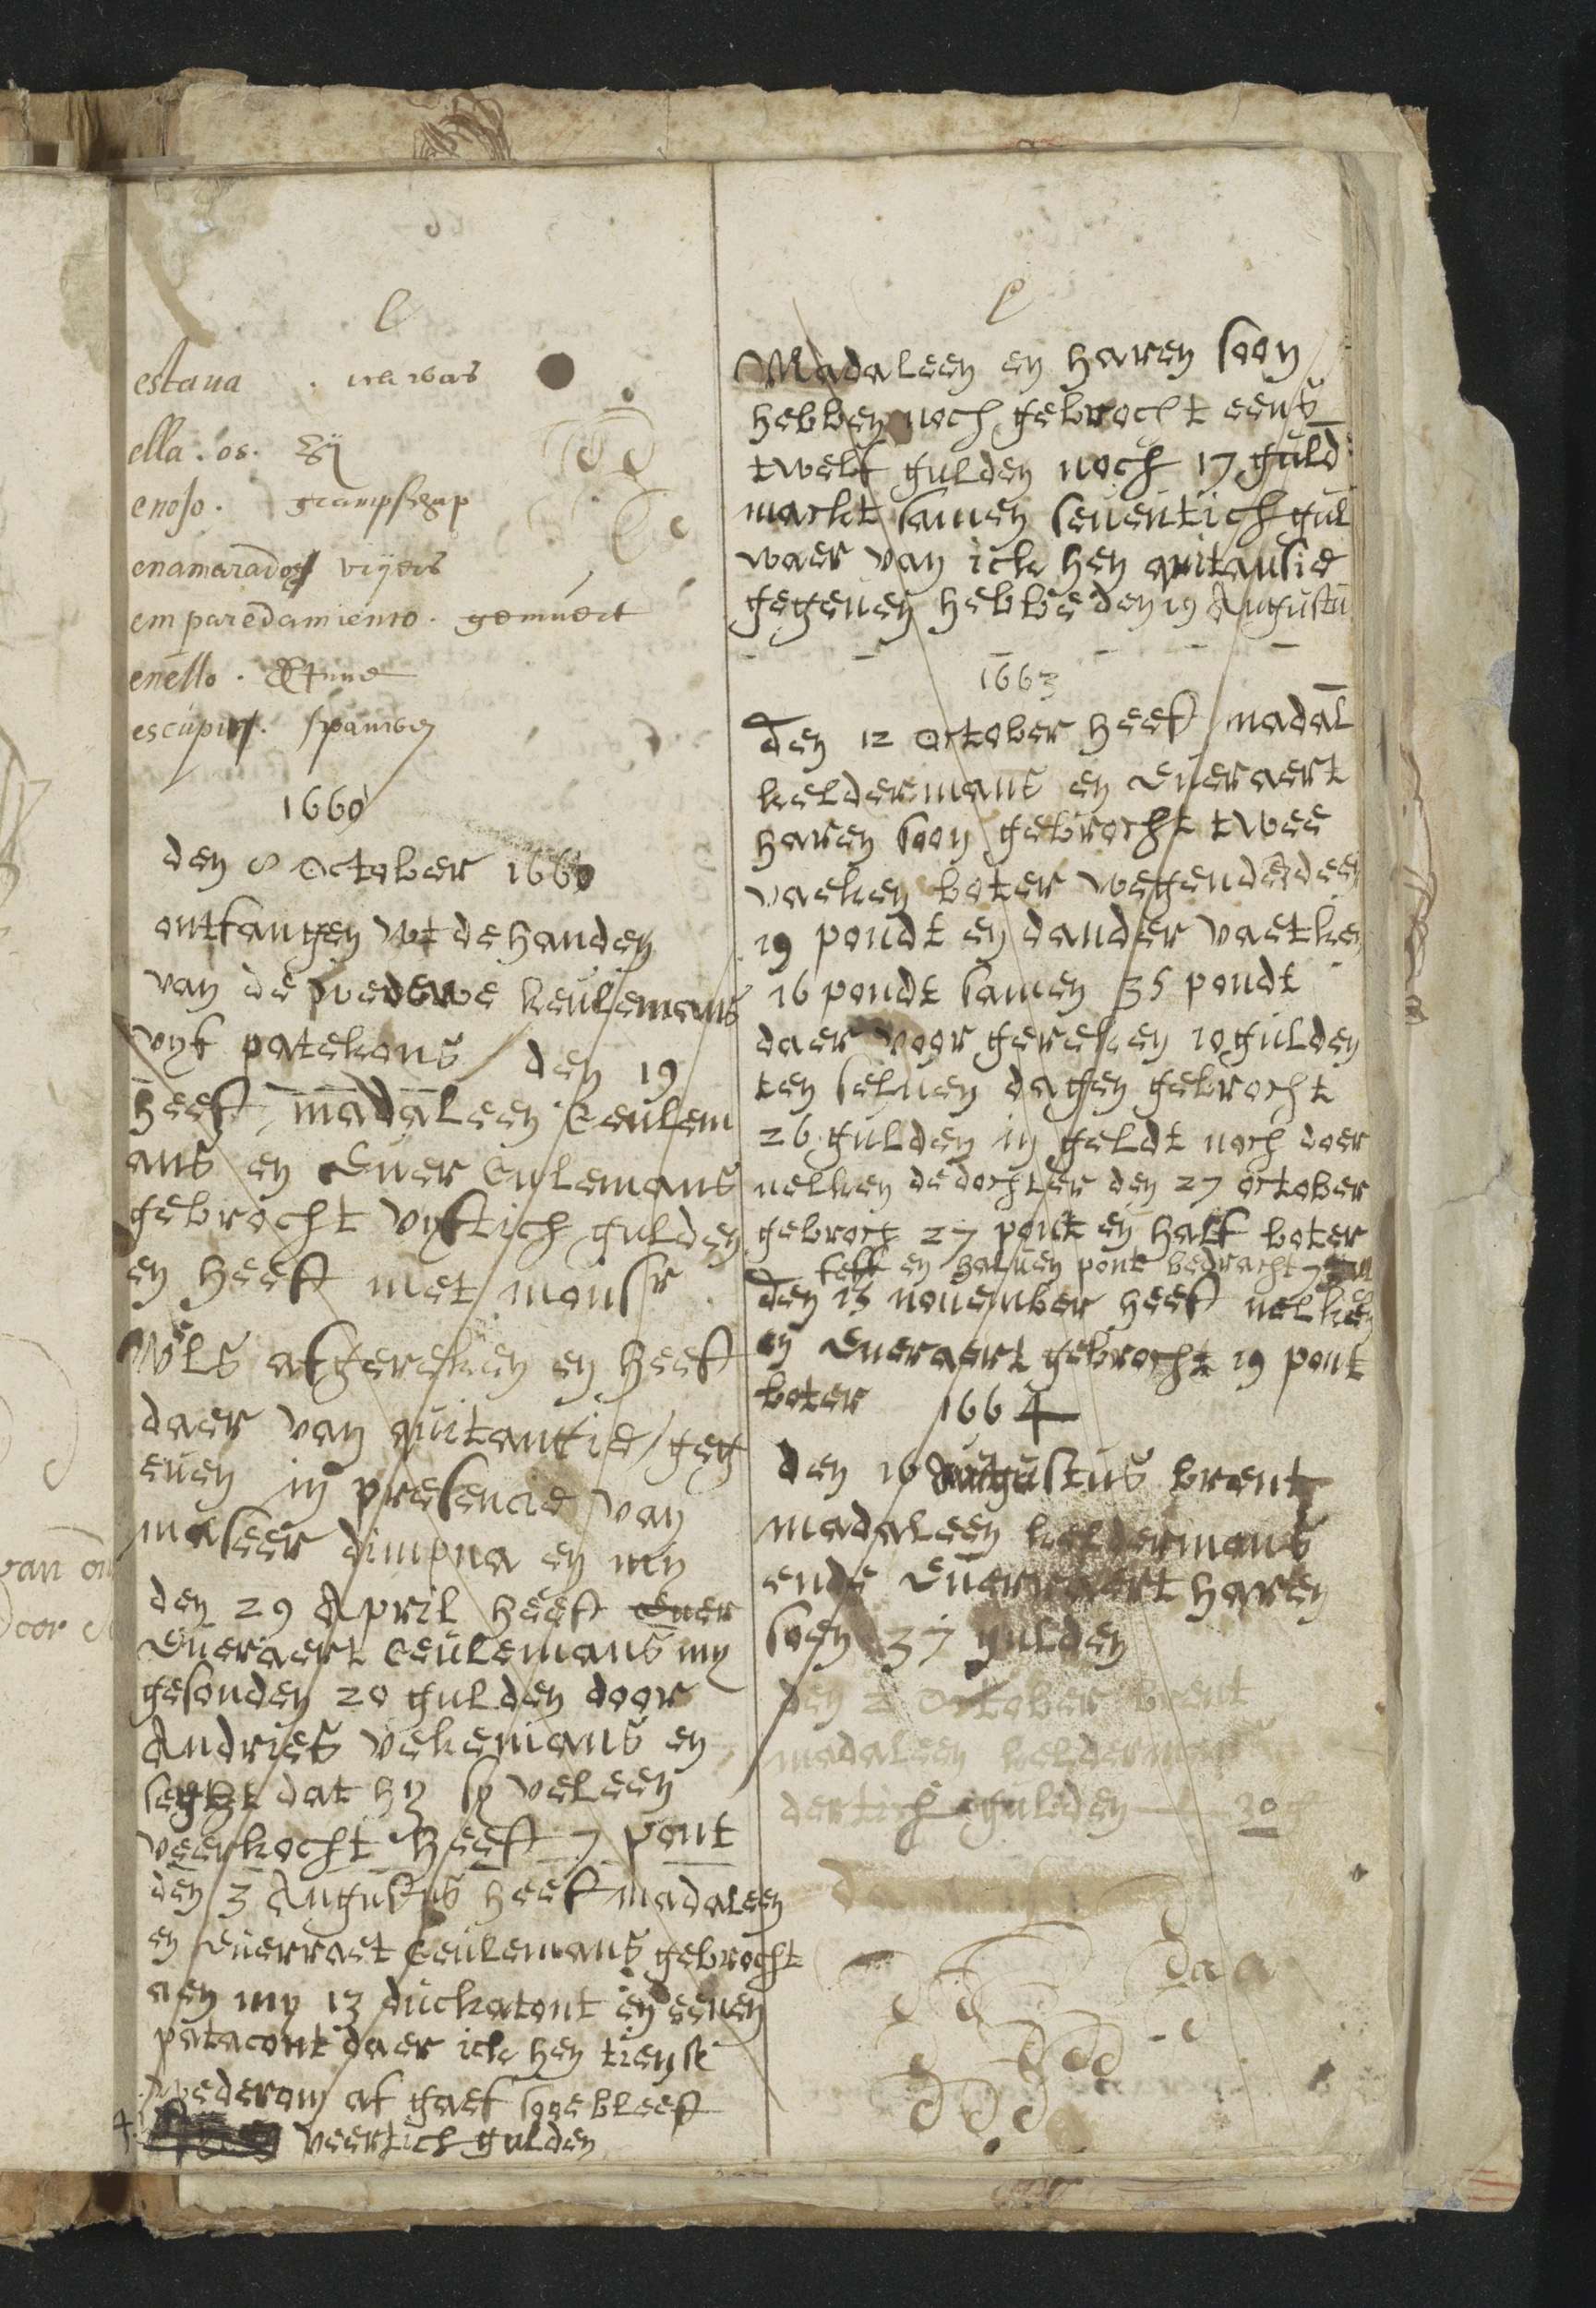 e
estaua . was
ella . os . zÿ
enojo . gramschap
enamarados vrÿers
emparedamiento . gemuert
enello .
escupir . spauwen
1660
den 8 October 1660
ontfangen wt de handen
van de wedewe keulemans
vyf patekons den 19
heeft madaleen Ceulem
ans en Euer Culemans
gebrocht vyftich gulden
en heeft met monsr
Wels afgereken en heeft
daer van quitantie geg
euen in presencie van
maseer dimpna en myn
den 29 April heeft Euer
Eueraert Ceulemans my
gesonden 20 gulden door
Andries vekemans en
seght dat hy sy veleen
veerkocht heeft 7 pont
den 3 Augustus heeft madaleen
en Euerraet Ceulemans gebrocht
aen my 13 duckatont en eenen
patacont daer ick hen tien st
wederom af gaef soo bleeft
veertich gulden
e
Madaleen en haren soon
hebben noch gebrocht eens
twelf gulden noch 17 guld
mackt samen seuentich gul
waer van ick hen quitansie
gegeuen hebbe den 19 Augustu
1663
den 12 October heeft madal
keldermans en Eueraert
haren soon gebrocht twee
vaeken boter wegende deen
19 pondt en dander vaetken
16 pondt samen 35 pondt
daer voor gereken 10 gulden
ten seluen dagen gebrocht
26 gulden in geldt noch doer
nelken de dochter den 27 october
gebroch 27 pont en half boter
en haluen pont bedracht 7 gul
den 15 nouember heeft nelken
en Eueraert gebrocht 19 pont
boter 1664
den 16 Augustus brent
madaleen keldermans
ende Euerraert haren
soen 37 gulden
den 2 October brent
madaleen keldermans
dertich gulden 30 g
daa